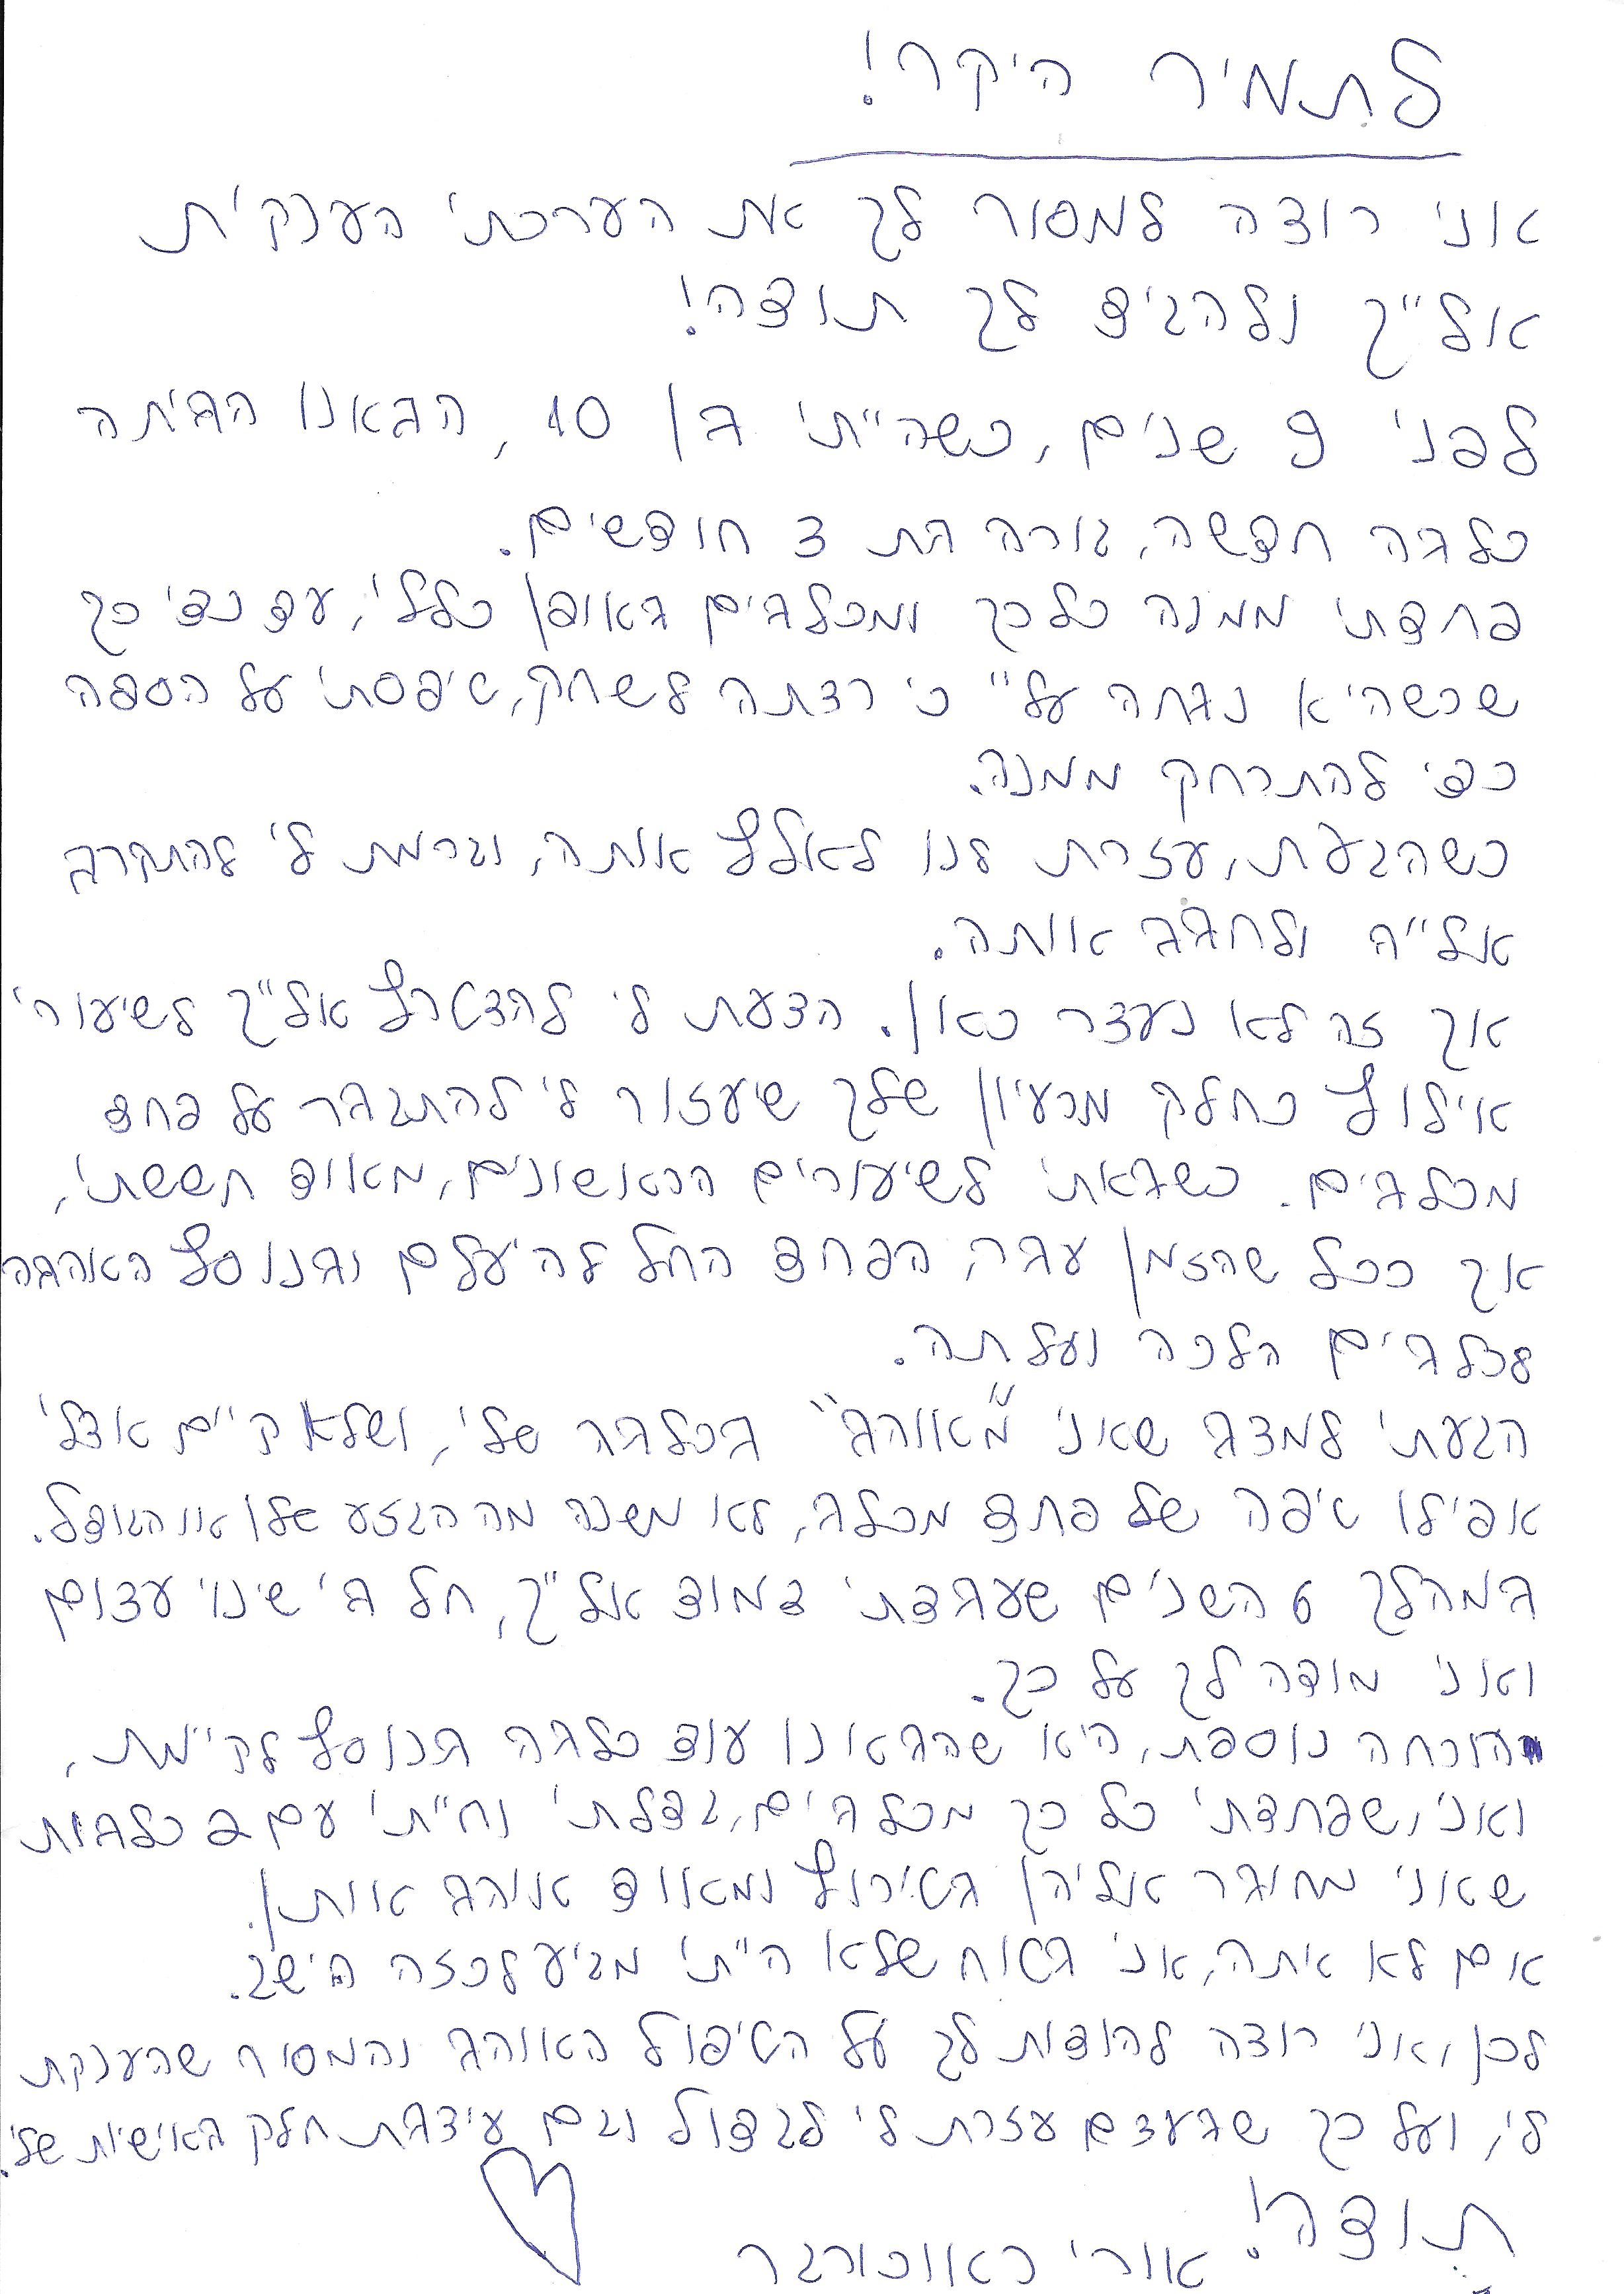 לתמיר היקר!
אני רוצה למסור לך את הערכתי הענקית
אלייך ולהגיד לך תודה!
לפני 9 שנים, כשהייתי בן 10, הבאנו הביתה
כלבה חדשה, גורה בת 3 חודשים.
פחדתי ממנה כל כך ומכלבים באופן כללי, עד כדי כך
שכשהיא נבחה עליי כי רצתה לשחק, טיפסתי על הספה
כדי להתרחק ממנה.
כשהגעת, עזרת לנו לאלף אותה, וגרמת לי להתקרב
אלייה ולחבב אותה.
אך זה לא נעצר כאן. הצעת לי להצטרף אלייך לשיעורי
אילוף כחלק מרעיון שלך שיעזור לי להתגבר על פחד
מכלבים. כשבאתי לשיעורים הראשונים, מאוד חששתי,
אך ככל שהזמן עבר, הפחד החל להיעלם ובנוסף האהבה
לכלבים הלכה ועלתה.
הגעתי למצב שאני "מאוהב" בכלבה שלי, ושלא קיים אצלי
אפילו טיפה של פחד מכלב, לא משנה מה הגזע שלו או הגודל.
במהלך 6 השנים שעבדתי צמוד אלייך, חל בי שינוי עצום
ואני מודה לך על כך.
הוכחה נוספת, היא שהבאנו עוד כלבה בנוסף לקיימת,
ואני, שפחדתי כל כך מכלבים, גדלתי וחייתי עם 2 כלבות
שאני מחובר אליהן בטירוף ומאוד אוהב אותן.
אם לא אתה, אני בטוח שלא הייתי מגיע לכזה הישג.
לכן, אני רוצה להודות לך על הטיפול האוהב והמסור שהענקת
לי, ועל כך שבעצם עזרת לי לגדול וגם עיצבת חלק באישיות שלי.
תודה!
אורי ראוכורגר